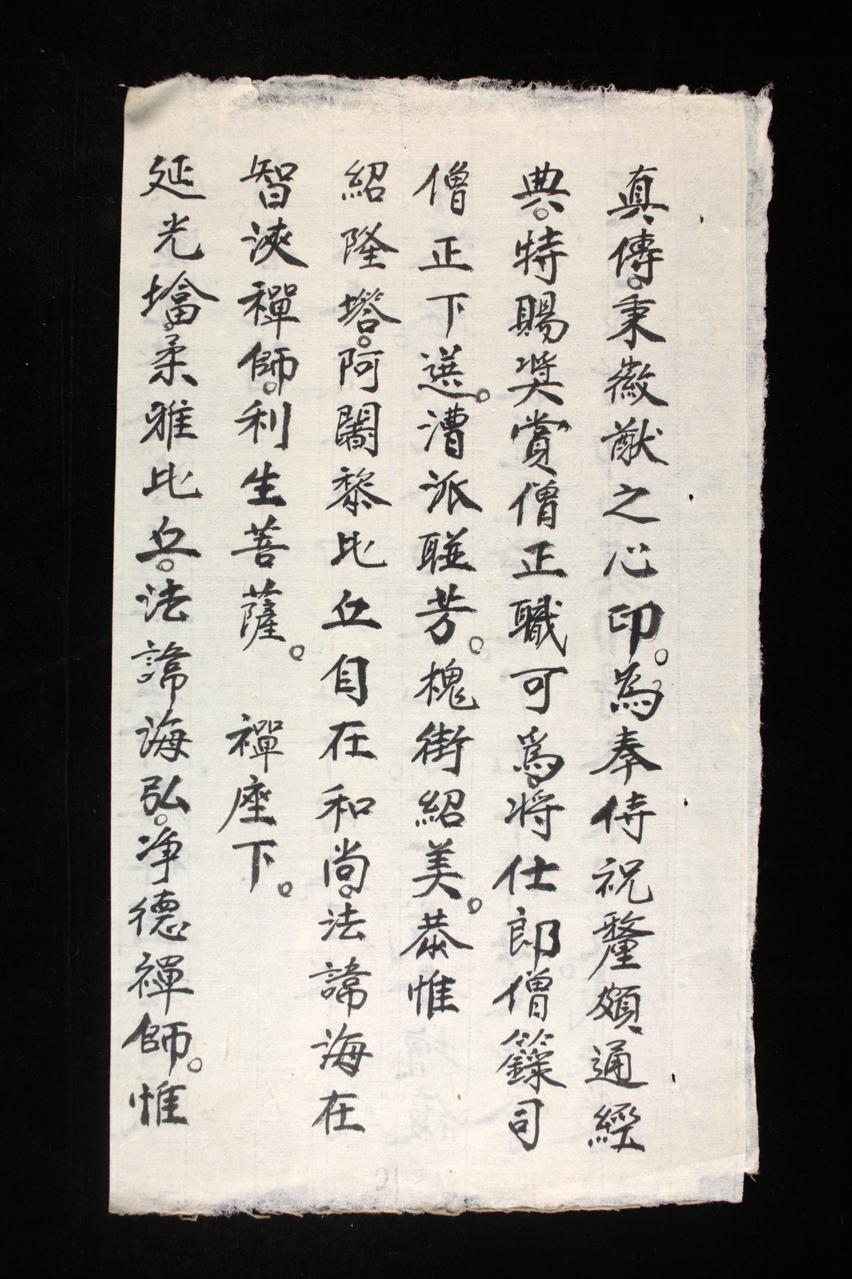 真傳。秉徽猷之心印。為奉侍祝釐頗通經
典。特賜奨賞僧正職可爲。将仕郎僧籙司
僧正下選。漕派聮芳。槐街紹美。恭惟
紹隆塔。阿闍黎比丘自在和尚。法諱海在
智浹禪師。利生菩薩。 禪座下。
延光墖。柔雅比丘。法諱海弘。净德禪師。惟